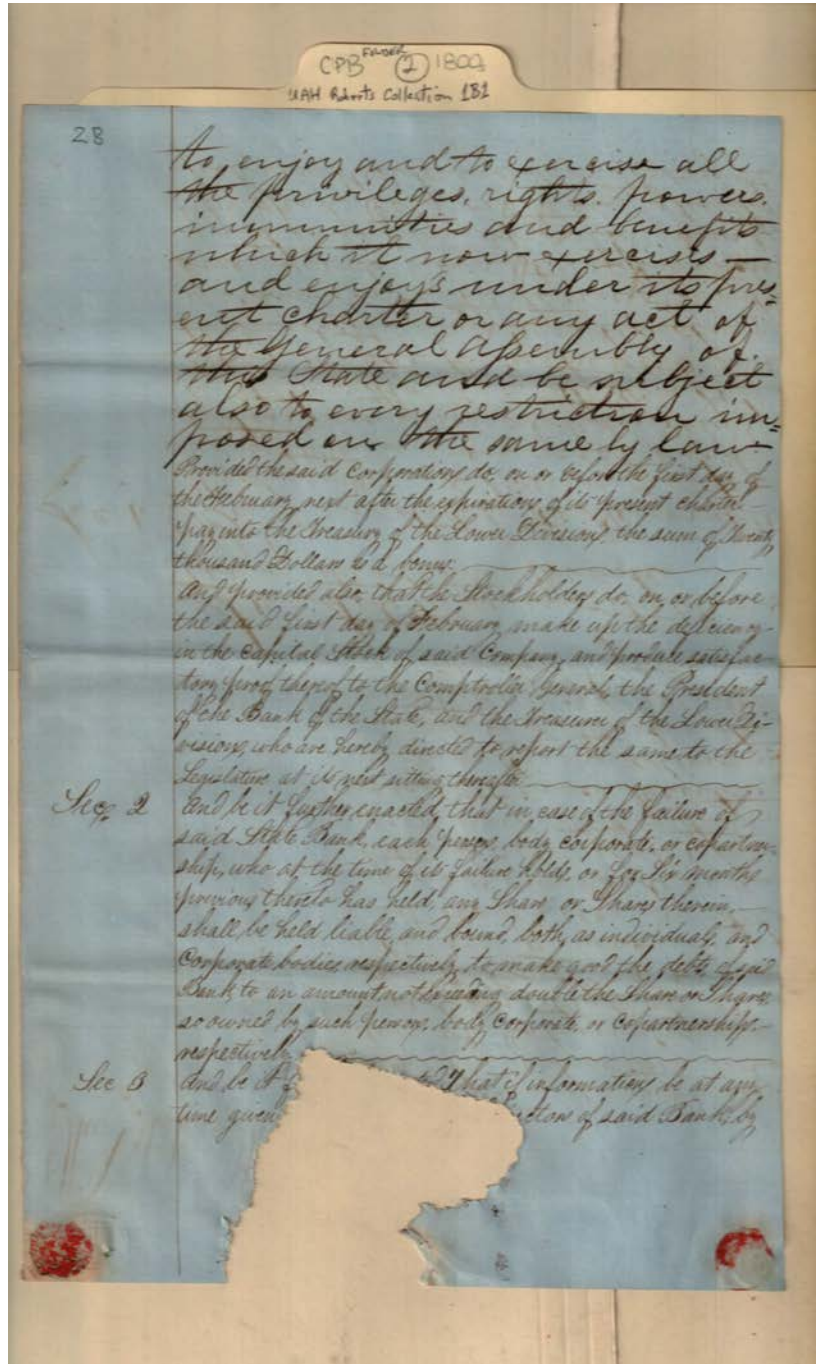 CPB FOLDER 2 1809
UAH Roberts Collection 1B1
28
to enjoy and to exercise all
the privileges, rights, powers,
immunities and benefits
which it now exercises —
and enjoys under its pres=
ent charter or any act of
the General Assembly of
this State and be subject
also to every restriction im=
posed on the same by law—
Provided the said Corporations do, on or before the first day of
the February next after the expirations of its present charter
pay into the Treasury of the Lower Division, the sum of Twenty
thousand Dollars as a bonus.
And provided also, that the Stockholders do, on, or before
the said first day of February make up the deficiency
in the Capital Stock of said Company, and produce satisfac-
tory proof thereof to the Comptroller General, the President
of the Bank of the State, and the Treasurer of the Lower Di-
vision, who are hereby directed to report the same to the
Legislature at its next sitting thereafter
Sec. 2 And be it further enacted, that in case of the failure of
said State Bank, each person, body corporate, or copartner-
ship, who at the time of its failure holds, or for Six months
previous thereto has held, any Share or Shares therein,
shall be held liable, and bound, both, as individuals, and
Corporate bodies respectively, to make good the debts of said
Bank to an amount not exceeding double the Share or Shares
so owned by such person, body Corporate, or Copartnership,
respectively
Sec 3 And be it That if information be at any
time given of said Bank, by